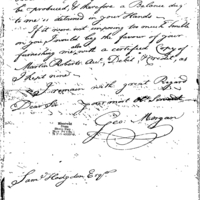 be produced, & therefore a Balance due
to me is returned in your Hands
If it were not imposing too much trouble
on you, I would beg the favour of your
also
furnishing me with a certified Copy of
Martin Roberts Act. Debit & Credit, as
I kept mine
I remain with great Regard
Dear Sir your most Obt Servant
Geo: Morgan
Saml Hodgdon Esqr